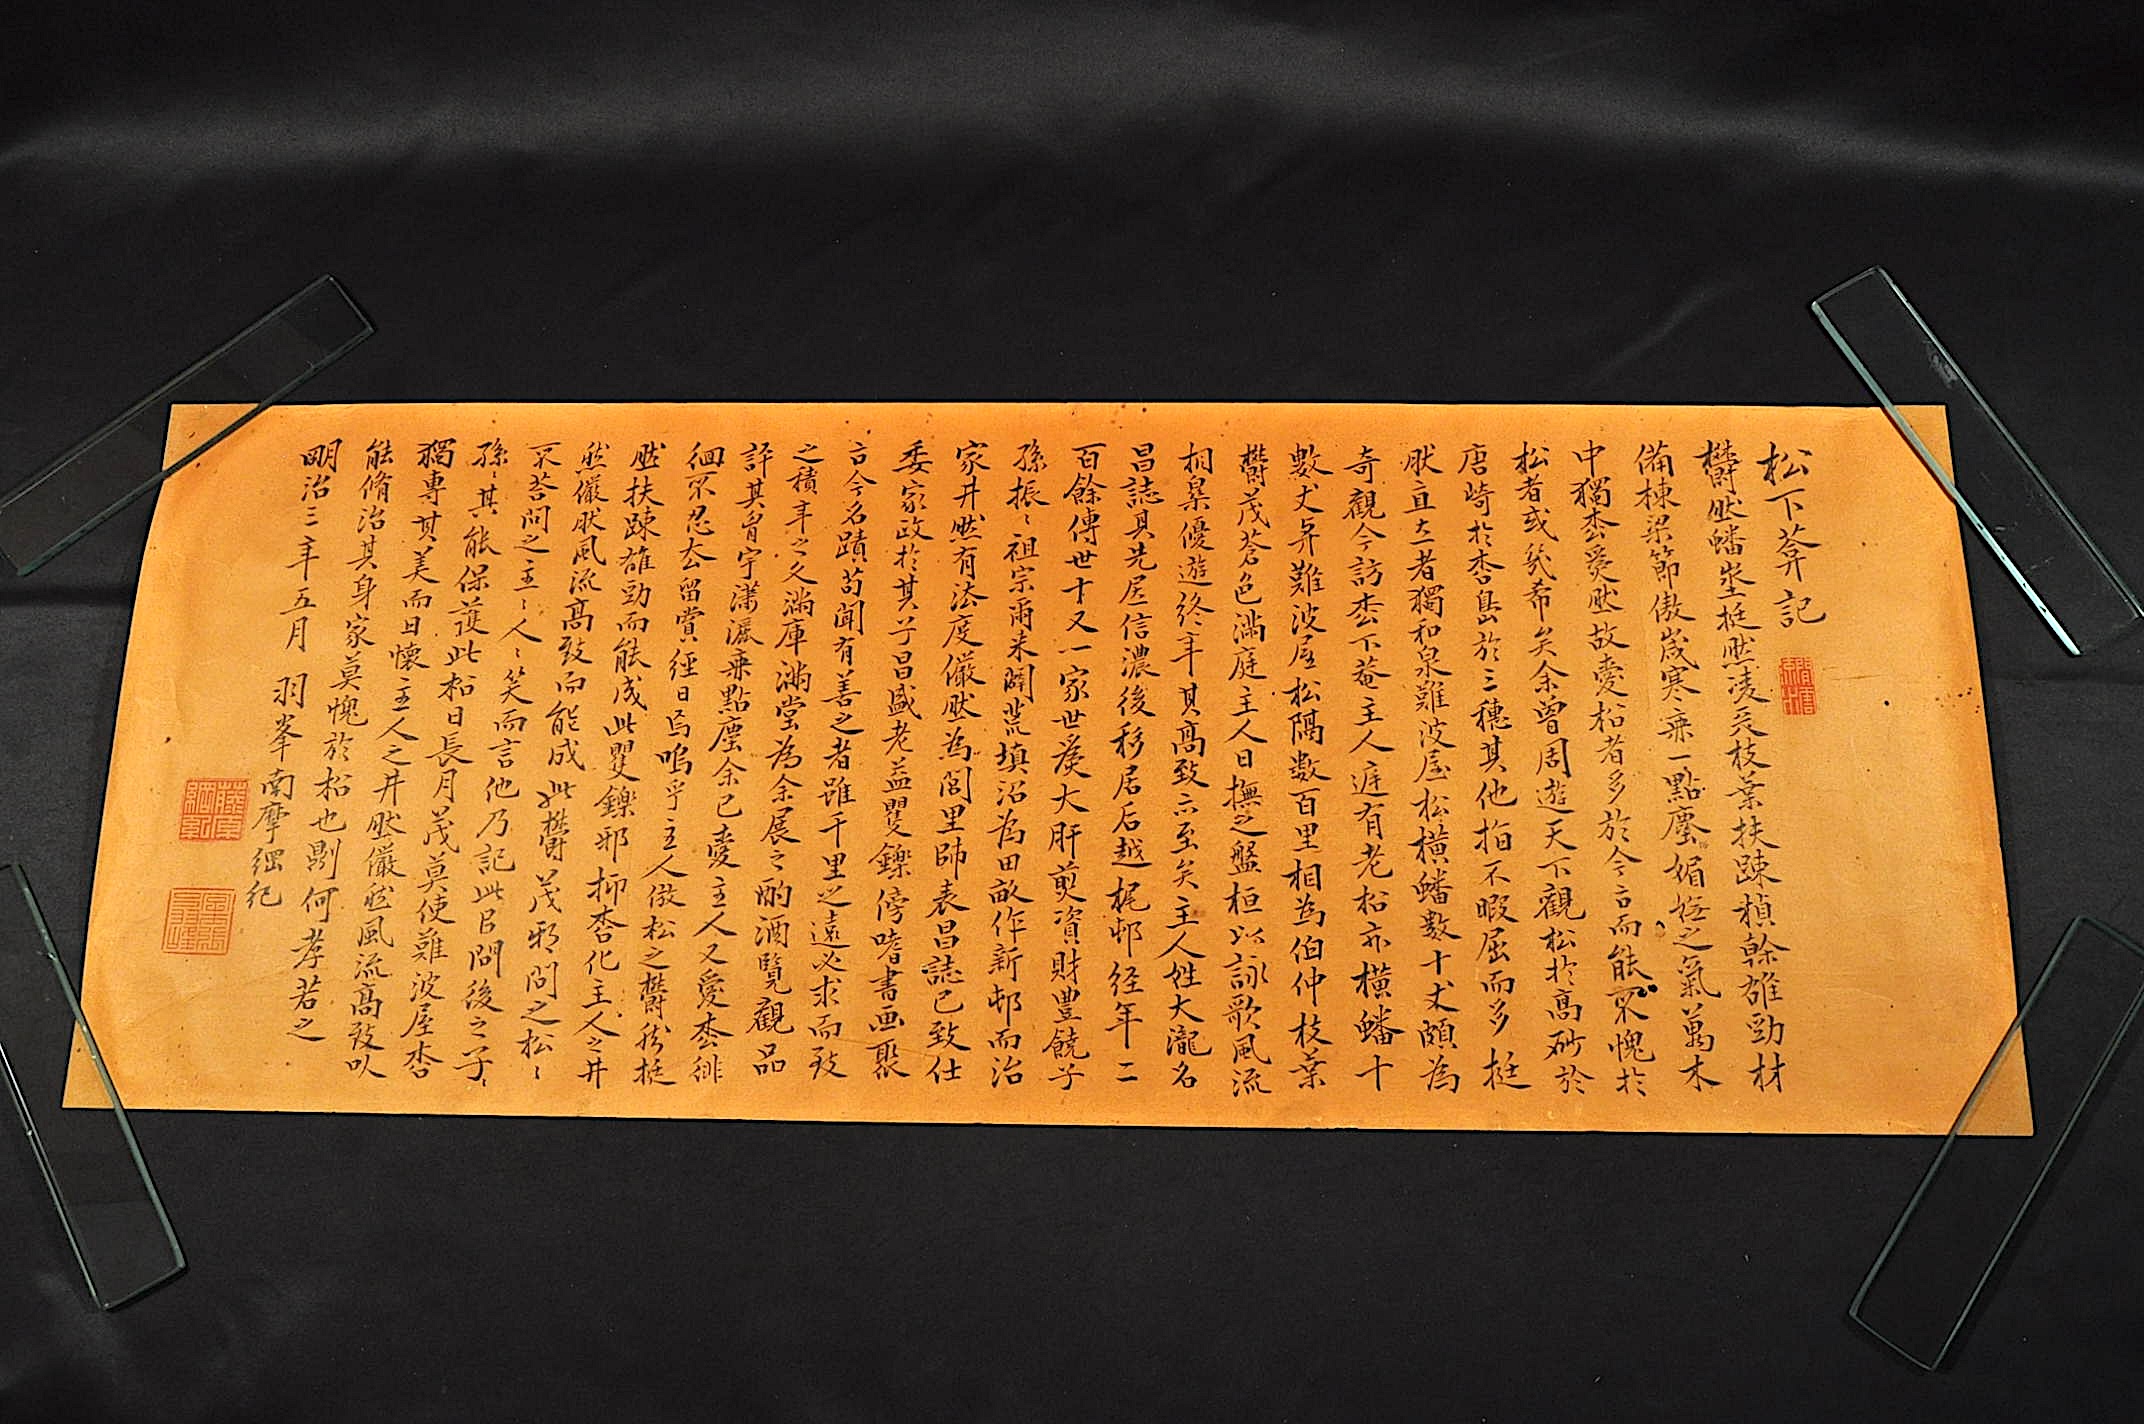 松下菴記
欝然蟠坐挺然凌天枝葉扶踈楨幹雄勁材
備棟梁節傲歳寒乗一點塵媚嫵之氣萬木
中獨枩爰然故愛松者多於今言而能不愧於
松者或幾希矣余曾周遊天下觀松於髙砂於
唐崎於枩島於三穂其他指不暇屈而多挺
然直立者獨和泉難波屋松横蟠數十丈頗為
奇觀今訪枩下菴主人庭有老松亦横蟠十
數丈與難波屋松隔數百里相為伯仲枝葉
欝茂蒼色滿庭主人日撫之盤桓以詠歌風流
相羣優遊終年其髙致亦至矣主人姓大瀧名
昌誌其先居信濃後移居后越梶邨経年二
百餘傳世十又一家世為大肝煎資財豊饒子
孫振〻祖宗爾来闢荒填沼為田畝作新邨而治
家井然有法度儼然為閭里師表昌誌已致仕
委家政於其子昌盛老益矍鑠傍嗜書画聚
古今名蹟苟聞有善之者雖千里之遠必求而致
之積年之久滿庫滿堂為余展之酌酒覧觀品
評其胷宇瀟灑乗點塵余已愛主人又愛枩徘
徊不忍去留賞経日焉嗚乎主人傚松之欝然挺
然扶踈雄勁而能成此矍鑠邪抑枩化主人之井
然儼然風流髙致而能成此欝茂邪問之松〻
不荅問之主〻人〻笑而言他乃記此且問後之子〻
孫〻其能保護此松日長月茂莫使難波屋枩
獨專其美而且懐主人之井然儼然風流髙致以
能脩治其身家莫愧於松也則何孝若之
明治三年五月 羽峯南摩綱紀
藤原綱紀